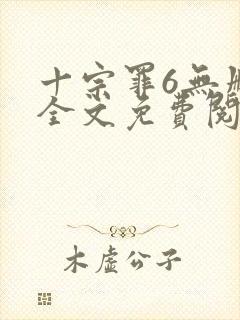 十宗罪6無
全文免費閱
木虛公子